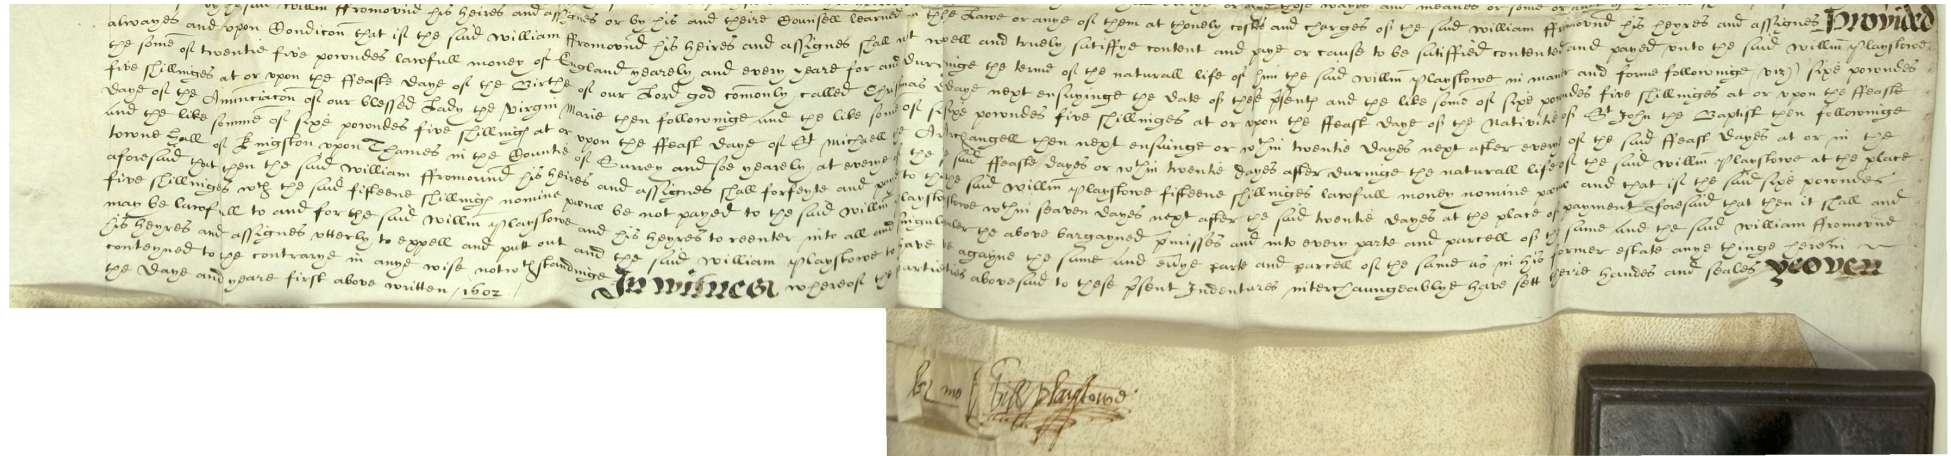 by the said Willm ffromound his heires and assignes or by his and theire Counsell learned in the Lawe or anye of them at thonely costes and charges of the said William ffromound his heyres and assignes Provided
alwayes and vpon Condicon that if the said William ffromound his heires and assignes shall well and truely satisfye content and paye or cause to be satisfied contented and payed vnto the said Willm Playstowe
the some of twentie five powndes lawfull money of England yearely and every yeare for and duringe the terme of the naturall life of him the said Willm Playstowe in maner and forme followinge viz) sixe powndes
five shillinges at or vpon the ffeaste daye of the Birthe of our Lord god comonly called Christmas daye next ensuyinge the date of these psents and the like some of sixe powndes five shillinges at or vpon the ffeaste
daye of the Anunciacon of our blessed Lady the virgin Marie then followinge and the like some of sixe powndes five shillinges at or vpon the ffeast daye of the Nativitie of St John the Baptist then followinge
and the like somme of sixe powndes five shillings at or vpon the ffeast daye of St Michaell the Archangell then next ensuinge or wthin twentie dayes next after every of the said ffeast dayes at or in the
towne hall of Kingston vpon Thames in the Countie of Surrey and soe yearely at everye the said ffeaste dayes or wthin twentie dayes after duringe the naturall life of the said Willm Playstowe at the place
aforesaid that then the said William ffromound his heires and assignes shall forfeyte and paye to the said Willm Playstowe fifteene shillinges lawfull money nomine pene and that if the said sixe powndes
five shillinges wth the said fifteene shillings nomine pene be not payed to the said Willm Playstowe wthin seaven dayes next after the said twentie dayes at the place of payment aforesaid that then it shall and
may be lawfull to and for the said Willm Playstowe and his heyres to reenter into all and singuler the above bargayned pmisses and into every parte and parcell of the same and the said William ffromound
his heyres and assignes vtterly to expell and putt out and the said William Playstowe to have agayne the same and evrye parte and parcell of the same as in his former estate anye thinge herein
conteyned to the contrarye in anye wise notwthstandinge In witnes whereof the parties abovesaid to these psent Indentures interchaungeablye have sett theire handes and seales yeoven
the daye and yeare first above written / 1602
Willm Playstowe